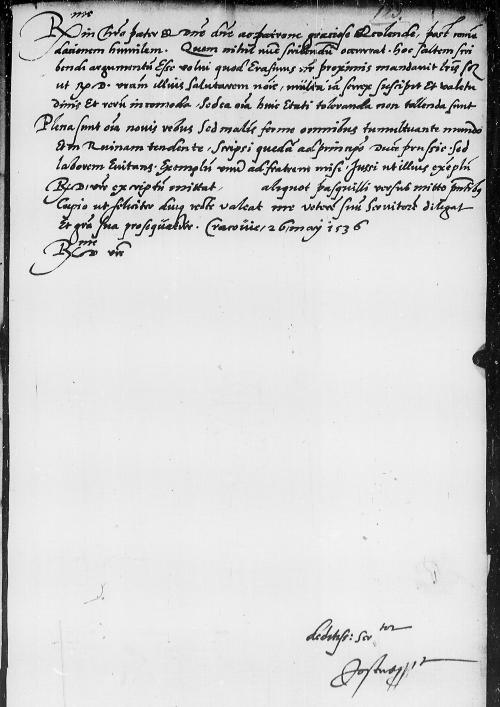 R me in Chro pater & Dne dne ac patrone graciose & colende, post comen
dacionem humilem. Quum nihil nuc scribendu occurrat. Hoc saltem scri
bendi argumentu Esse volui quod Erasmus in proximis mandavit lris suis
ut R P D. vram illius salutarem noie, multa ia senex suscipit Et valetu
dinis Et reru incomoda Sed ea oia huic Etati toleranda non tollenda sunt
Plena sunt oia novis rebus Sed malis ferme omnibus tumultuante mundo
Et in Ruinam tendente. Scripsi queda ad principe Duce prussie Sed
laborem Evitans. Exemplu unu ad fratrem misi. Jussi ut illius exeplu
R. D. vre exscriptu mittat, aliquot pasquilli versus mitto
Cupio ut feliciter diuq recte valeat me veterem suu servitore diligat
Et gra sua prosequatur. Cracovie, 26 may 1536
R me D vre
deditiss: ser tor